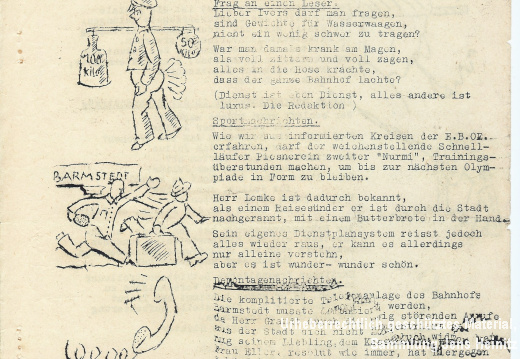 Frag an einen Leser.
Lieber Ivers darf man fragen,
sind Gewichte für Wasserwaagen,
nicht ein wenig schwer zu tragen?
War man damals krank am Magen,
als voll Zittern und voll zagen,
alles in die Hose krachte,
dass der ganze Bahnhof lachte?
(Dienst ist eben Dienst, alles andere ist
luxus. Die Redaktion )
Sportnachrichten.
Wie wir aus informierten Kreisen der E.B.OE.
erfahren, darf der weichenstellende Schnell-
läufer zweiter "Nurmi", Trainings-
überstunden machen, um bis zur nächsten Olym-
piade in Form zu bleiben.
BARMSTEDT
Herr Lomke ist dadurch bekannt,
als einem Reisesünder er ist durch die Stadt
nachgerannt, mit einem Butterbrote in der Hand.
Sein eigenes Dienstplansystem reisst jedoch
alles wieder raus, er kann es allerdings
nur alleine verstehn,
aber es ist wunder- wunder schön.
Die komplitierte anlage des Bahnhofs
Barmstedt musste werden,
da Herr störenden Anrufe
aus der Stadt nicht
seinem Liebling, dem
Frau Eller, resolut wie immer, hat hiergegen
50 Kilo
Urheberrechtlich geschütztes Material